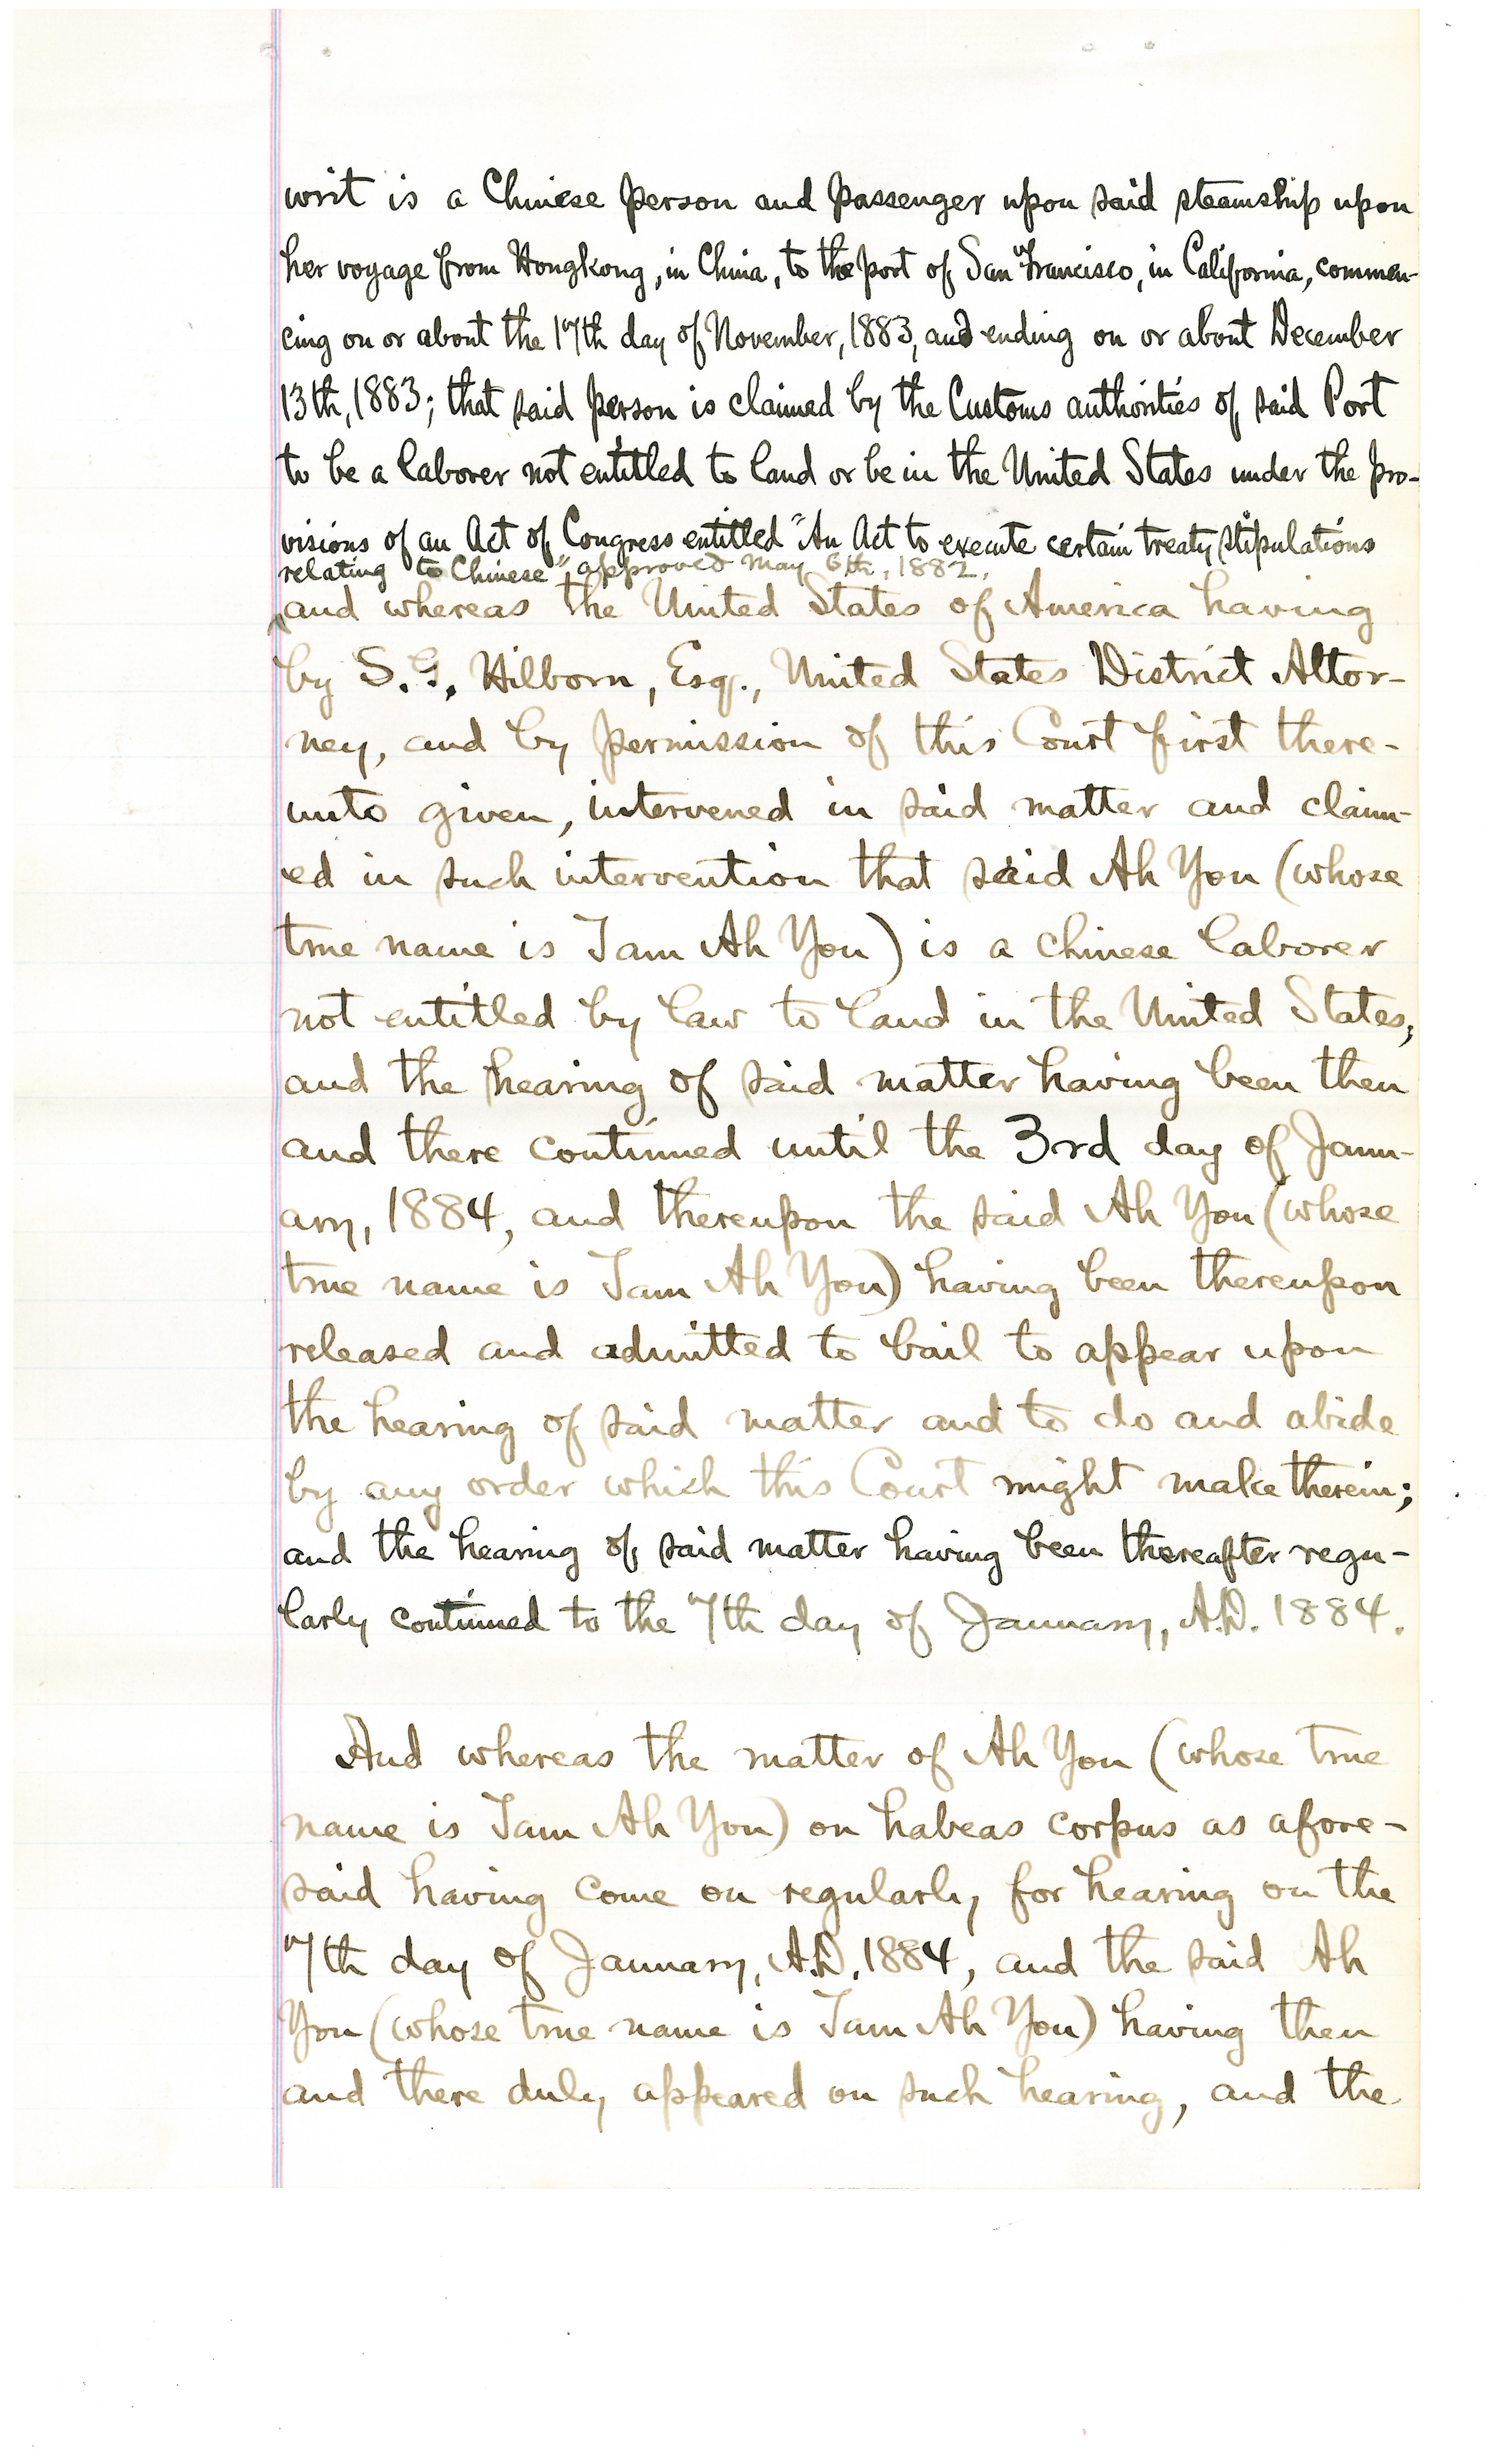 writ is a Chinese person and passenger upon said steamship upon
her voyage from Hongkong, in China, to the port of San Francisco, in California, commen-
cing on or about the 17th day of November, 1883, and ending on or about December
13th, 1883; that said person is claimed by the Customs authorities of said Port
to be a laborer not entitled to land or be in the United States under the pro-
visions of an Act of Congress entitled "An Act to execute certain treaty stipulations
relating to Chinese", approved May 6th, 1882,
and whereas the United States of America having
by S. G. Hilborn, Esq., United States District Attor-
ney, and by permission of this Court first there-
unto given, intervened in said matter and claim-
ed in such intervention that said Ah You (whose
true name is Tam Ah You) is a Chinese laborer
not entitled by law to land in the United States,
and the hearing of said matter having been then
and there continued until the 3rd day of Janu-
ary, 1884, and thereupon the said Ah You (whose
true name is Tam Ah You) having been thereupon
released and admitted to bail to appear upon
the hearing of said matter and to do and abide
by any order which this Court might make therein;
and the hearing of said matter having been thereafter regu-
larly continued to the 7th day of January, A.D. 1884.
And whereas the matter of Ah You (whose true
name is Tam Ah You) on habeas corpus as afore-
said having come on regularly for hearing on the
7th day of January, A.D. 1884, and the said Ah
You (whose true name is Tam Ah You) having then
and there duly appeared on such hearing, and the